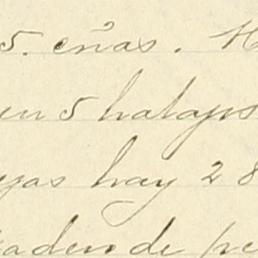 5. cñas. H
en 5 hatajos
yas hay 28
aden de pe